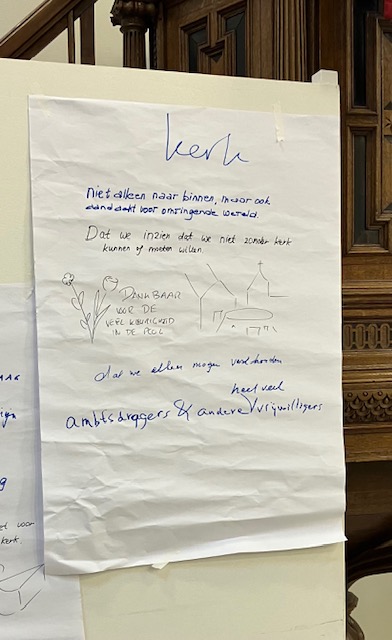 kerk
Niet alleen naar binnen, maar ook
aandacht voor omringende wereld.
Dat we inzien dat we niet zonder kerk
kunnen of moeten willen.
DANKBAAR
VOOR DE
VEELKLEURIGHEID
IN DE PGL
dat we allen mogen
heel veel
ambtsdragers & andere vrijwilligers
voor
kerk.